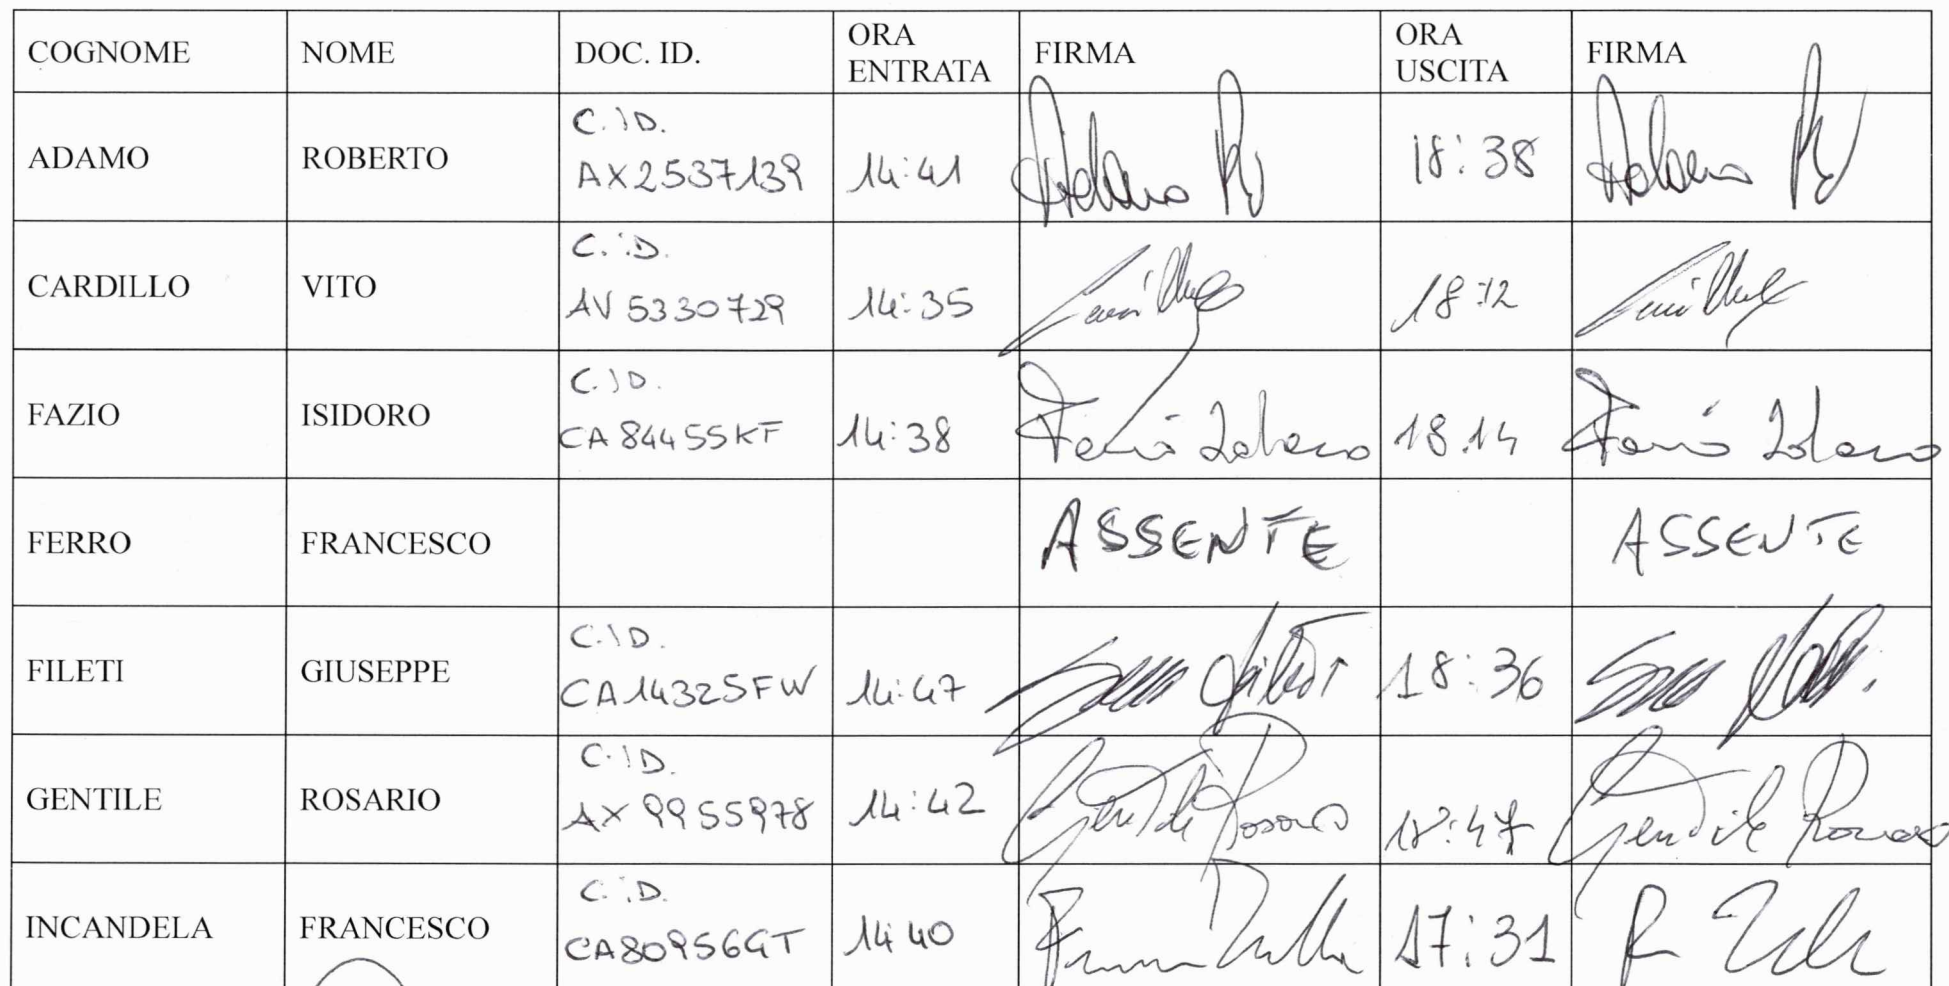 COGNOME NOME DOC. ID. ORA ENTRATA FIRMA ORA USCITA FIRMA
ADAMO ROBERTO C.ID. AX2537139 14:41 Adamo 18:38 Adamo
CARDILLO VITO C.iD. AV 5330729 14:35 18:12
FAZIO ISIDORO C.ID. CA 84455KF 14:38 Fazio Isidoro 18.14 Fazio Isidoro
FERRO FRANCESCO ASSENTE ASSENTE
FILETI GIUSEPPE C.ID. CA14325FW 14:47 18:36
GENTILE ROSARIO C.ID. AX 9955978 14:42 Gentile Rosario 18:47 Gentile Rosario
INCANDELA FRANCESCO C.iD. CA80956GT 14 40 17:31